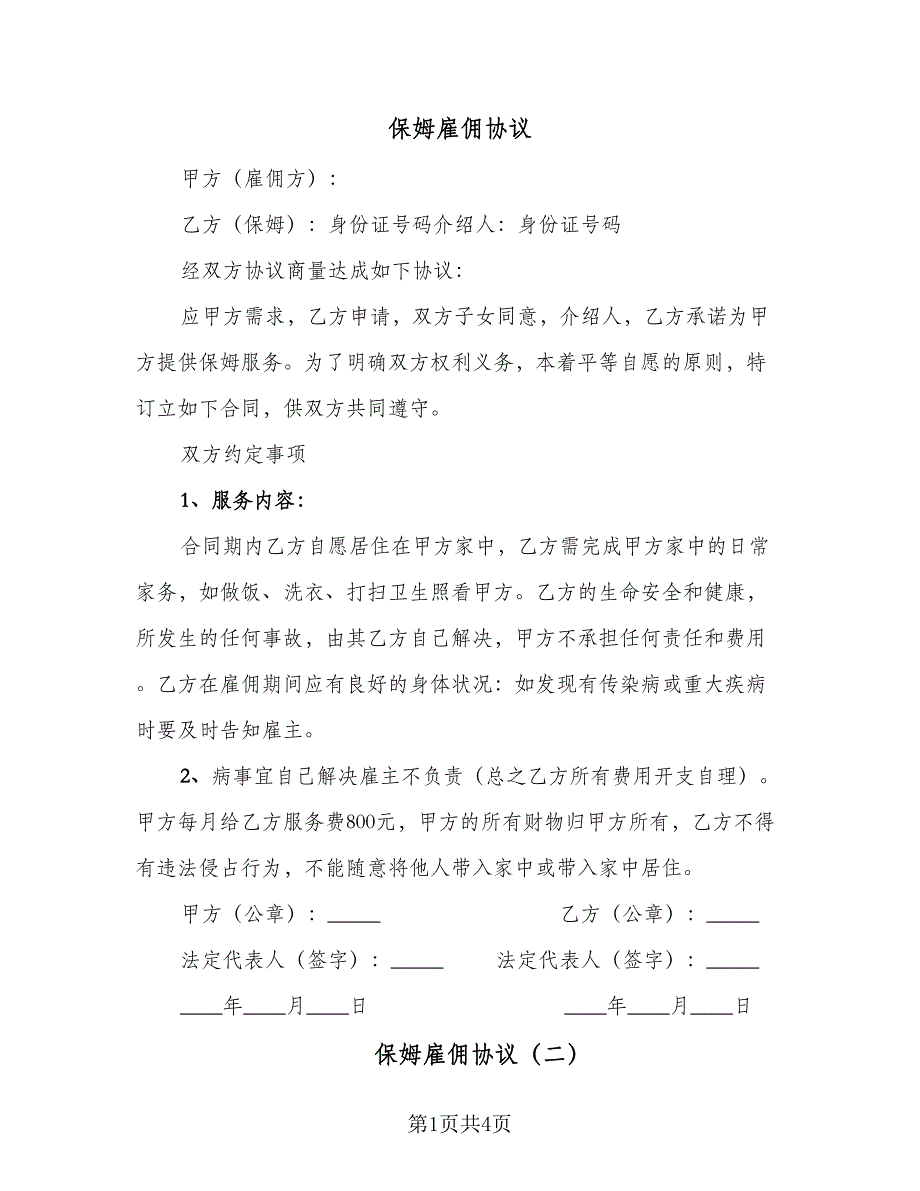 保姆雇佣协议
甲方（雇佣方）：
乙方（保姆）：身份证号码介绍人：身份证号码
经双方协议商量达成如下协议：
应甲方需求，乙方申请，双方子女同意，介绍人，乙方承诺为甲
方提供保姆服务。为了明确双方权利义务，本着平等自愿的原则，特
订立如下合同，供双方共同遵守。
双方约定事项
1、服务内容：
合同期内乙方自愿居住在甲方家中，乙方需完成甲方家中的日常
家务，如做饭、洗衣、打扫卫生照看甲方。乙方的生命安全和健康，
所发生的任何事故，由其乙方自己解决，甲方不承担任何责任和费用
。乙方在雇佣期间应有良好的身体状况：如发现有传染病或重大疾病
时要及时告知雇主。
2、病事宜自己解决雇主不负责（总之乙方所有费用开支自理）。
甲方每月给乙方服务费800元，甲方的所有财物归甲方所有，乙方不得
有违法侵占行为，不能随意将他人带入家中或带入家中居住。
甲方（公章）：_____ 乙方（公章）：_____
法定代表人（签字）：_____ 法定代表人（签字）：_____
____年____月____日 ____年____月____日
保姆雇佣协议（二）
第1页共4页